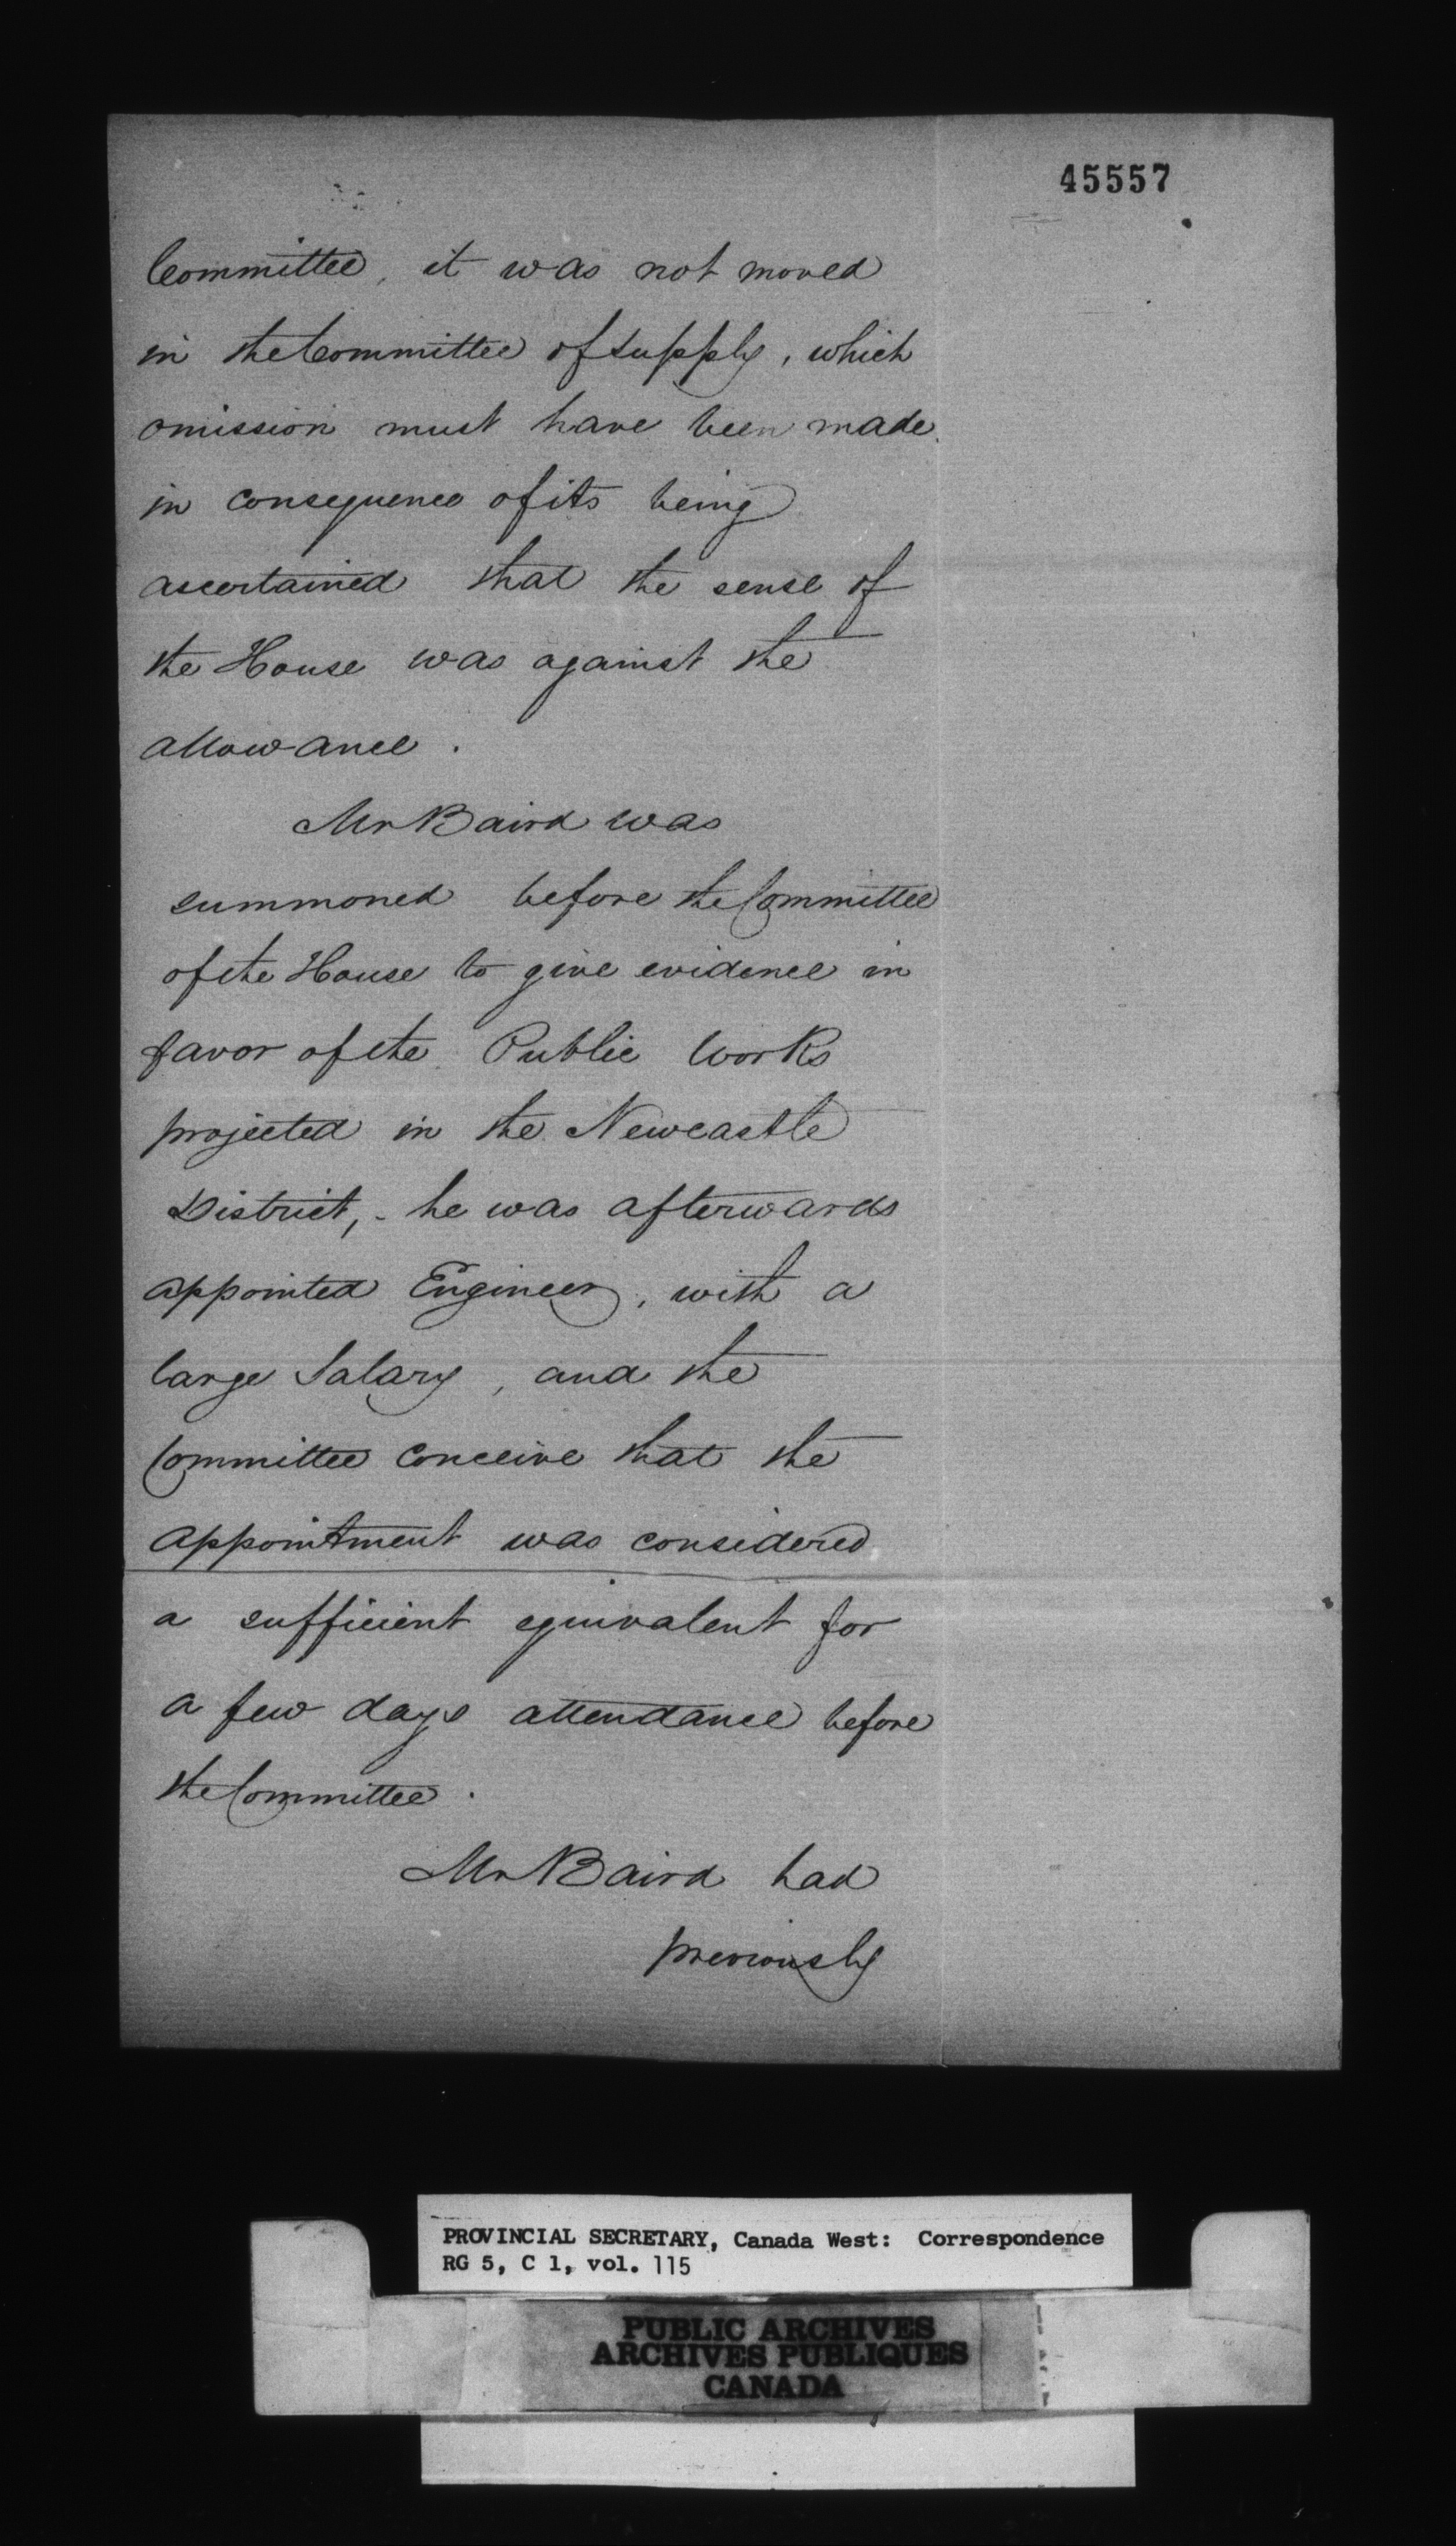 45557
Committee, it was not moved
in the Committee of supply, which
omission must have been made
in consequence of its being
ascertained that the sense of
the House was against the
allowance.
Mr Baird was
summoned before the Committee
of the House to give evidence in
favor of the Public Works
projected in the Newcastle
District, - he was afterwards
appointed Engineer, with a
large Salary, and the
Committee conceive that the
appointment was considered
a sufficient equivalent for
a few days attendance before
the Committee.
Mr Baird had
previously
PROVINCIAL SECRETARY, Canada West: Correspondence
RG 5, C 1, vol. 115
PUBLIC ARCHIVES
ARCHIVES PUBLIQUES
CANADA